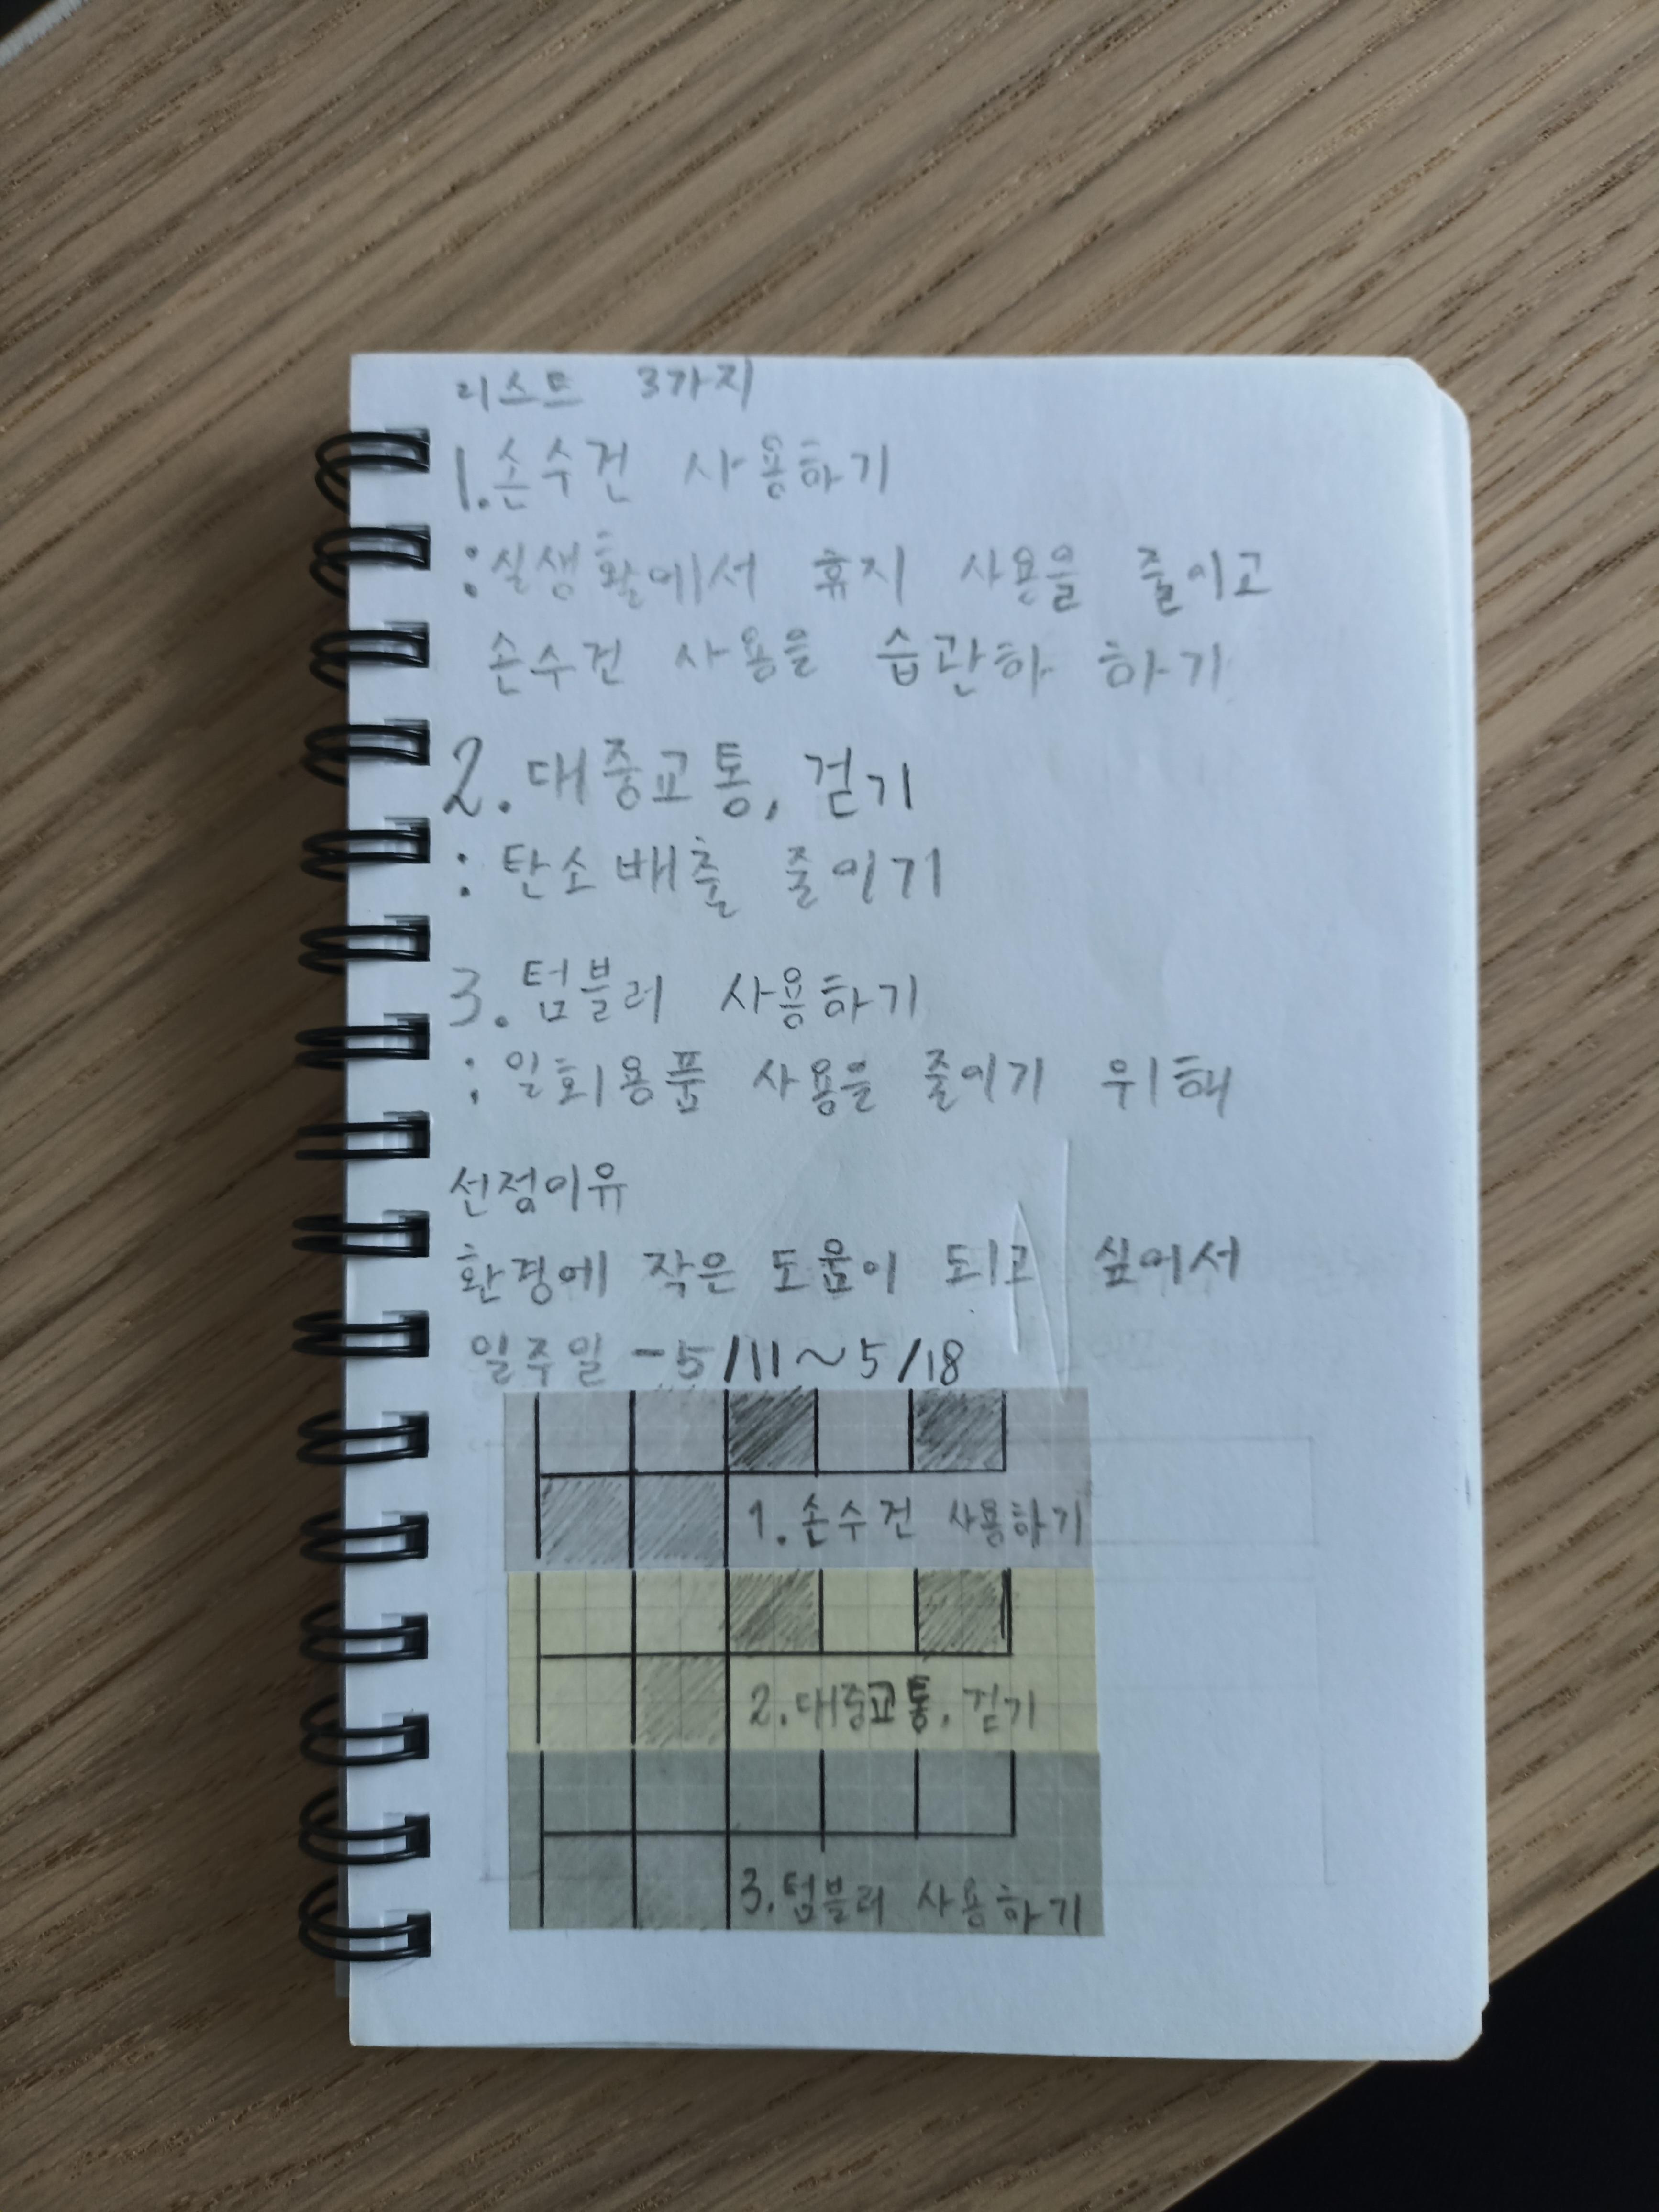 리스트 3가지
1.손수건 사용하기
:실생활에서 휴지 사용을 줄이고
손수건 사용을 습관화 하기
2.대중교통, 걷기
:탄소배출 줄이기
3.텀블러 사용하기
:일회용품 사용을 줄이기 위해
선정이유
환경에 작은 도움이 되고 싶어서
일주일 - 5/11~5/18
1.손수건 사용하기
2.대중교통, 걷기
3.텀블러 사용하기